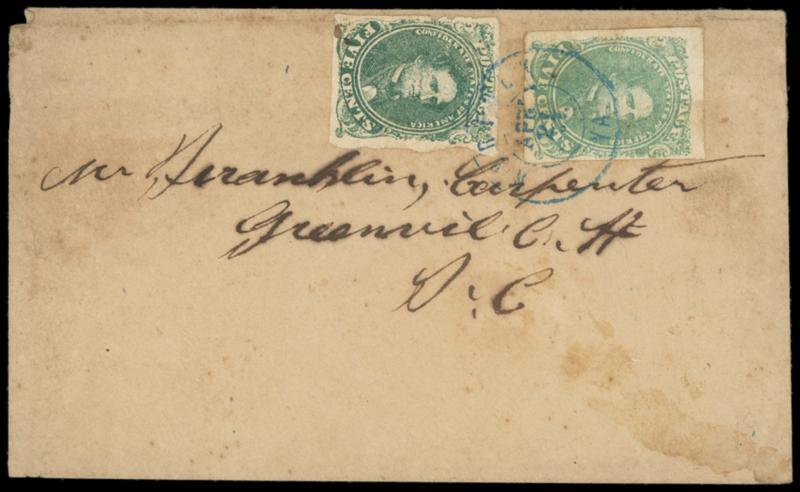 FIVE CENTS
CONFEDERATE STATES OF AMERICA
POSTAGE
CENTS
CONFEDERATE STATES OF AMERICA
POSTAGE
APR
24
VA
Mr Franklin, Carpenter
Greenvil C. H
S. C